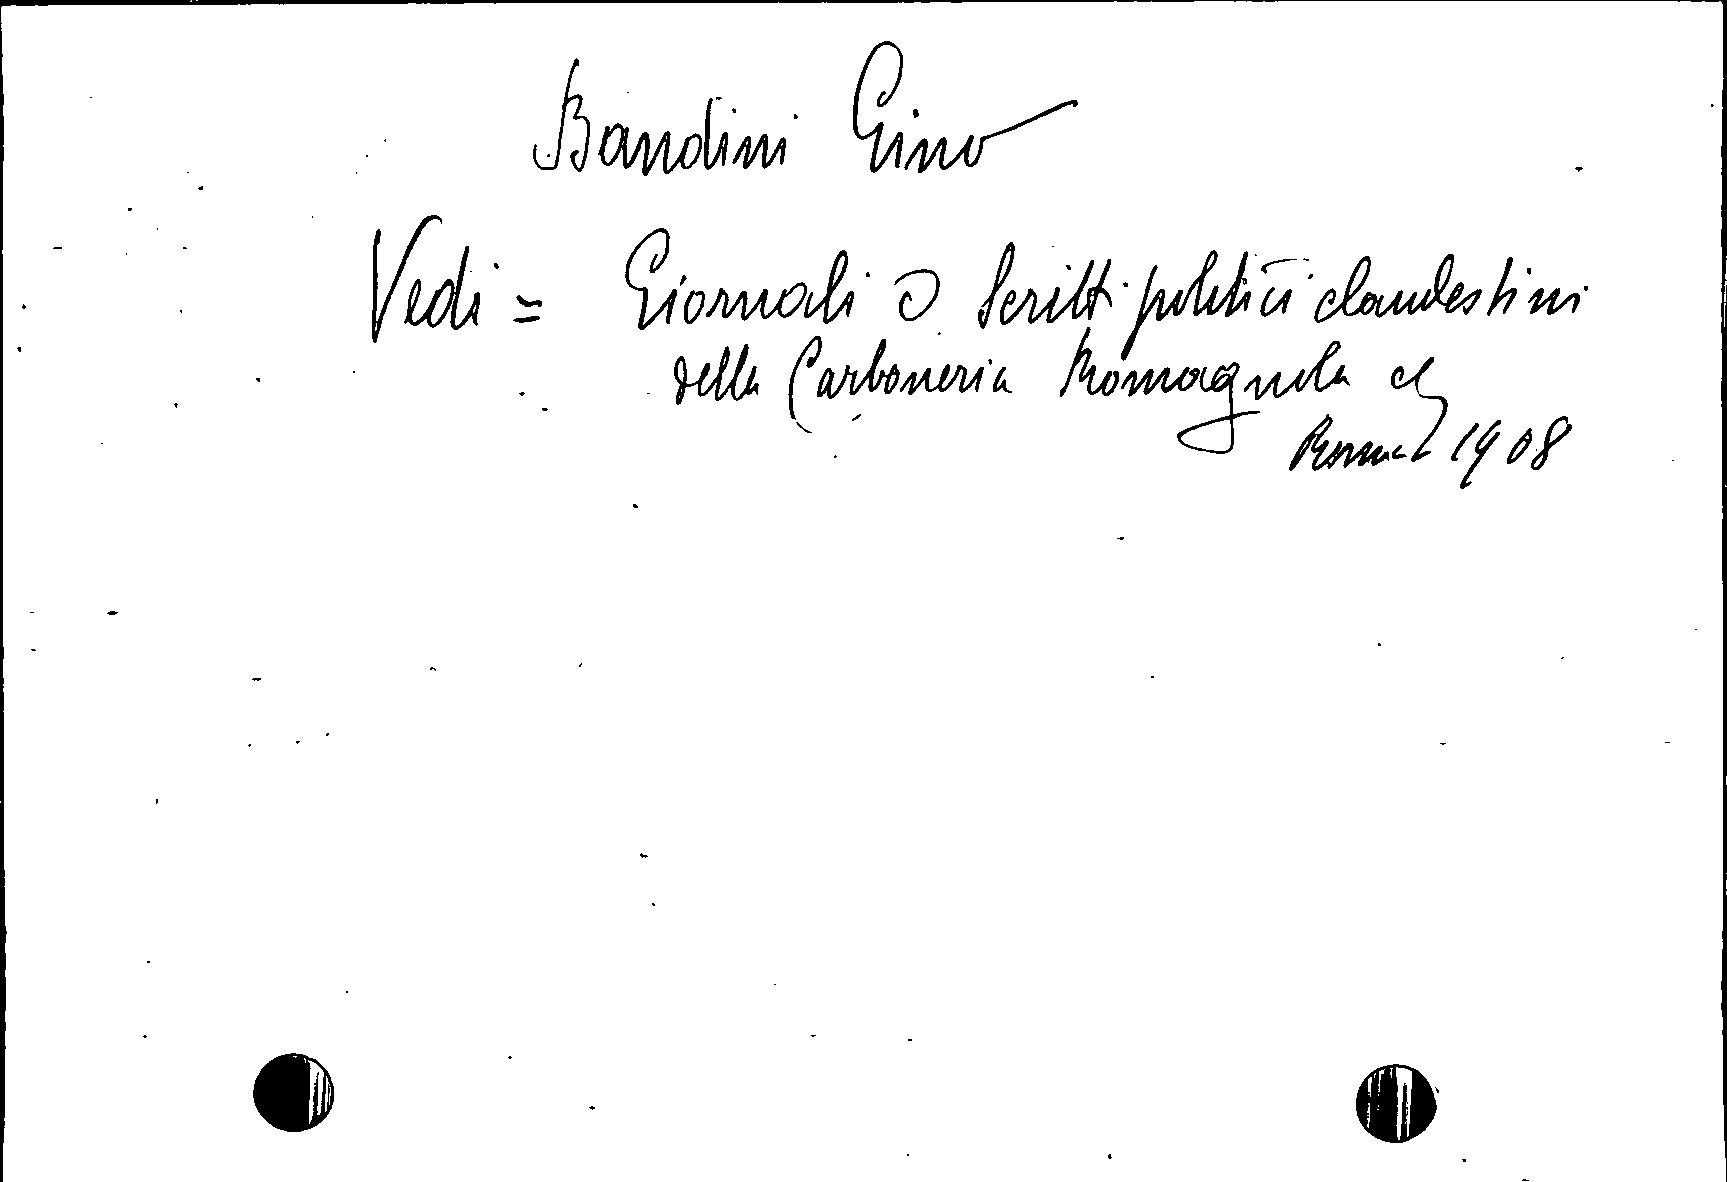 Bandini Gino
Vedi = Giornali e Scritti politici clandestini
della Carboneria Romagnola
Roma 1908